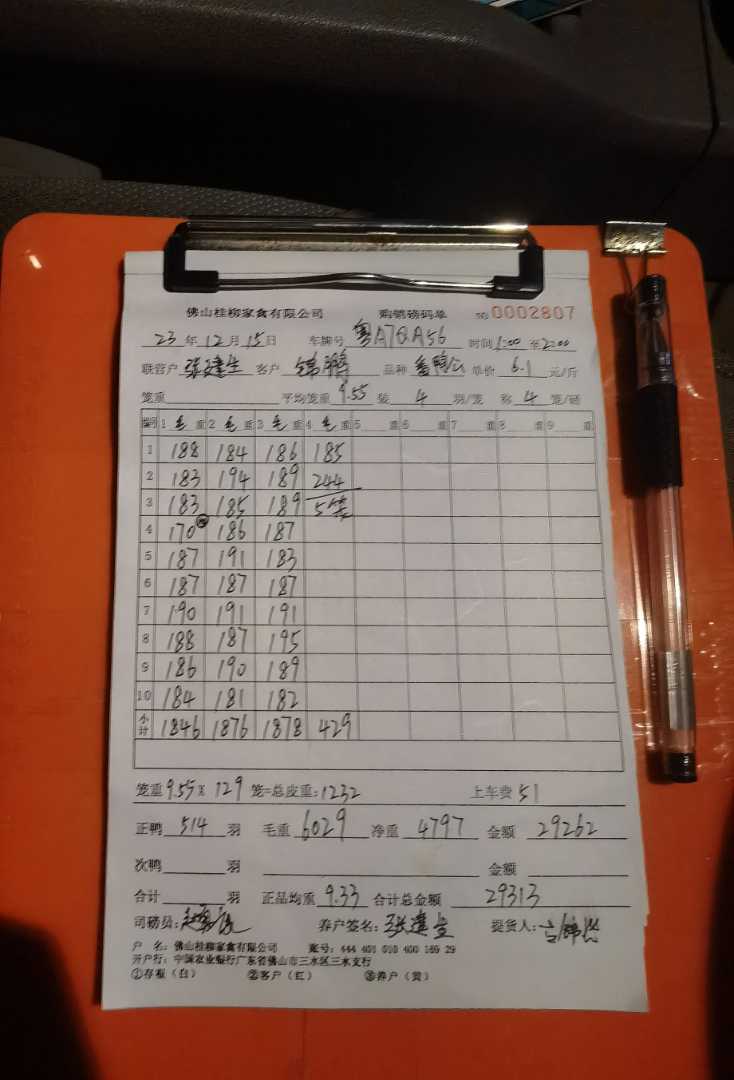 佛山桂柳家禽有限公司 购销磅码单 NO 0002807
23 年 12 月 15 日 车牌号 粤A7QA56 时间 1:00 至 2:00
联营户 张建生 客户 锦鹏 品种 番鸭公 单价 6.1 元/斤
笼重 平均笼重 9.55 装 4 羽/笼 称 4 笼/磅
编号 1 毛 重 2 毛 重 3 毛 重 4 毛 重 5 重 6 重 7 重 8 重 9 重
1 188 184 186 185
2 183 194 189 244
3 183 185 189 5笼
4 170 186 187
5 187 191 183
6 187 187 187
7 190 191 191
8 188 187 195
9 186 190 189
10 184 181 182
小计 1846 1876 1878 429
笼重 9.55 × 129 笼=总皮重: 1232 上车费 51
正鸭 514 羽 毛重 6029 净重 4797 金额 29262
次鸭 羽 金额
合计 羽 正品均重 9.33 合计总金额 29313
司磅员: 养户签名: 张建生 提货人:
户 名: 佛山桂柳家禽有限公司 账号: 444 401 010 400 169 29
开户行: 中国农业银行广东省佛山市三水区三水支行
①存根(白) ②客户(红) ③养户(黄)